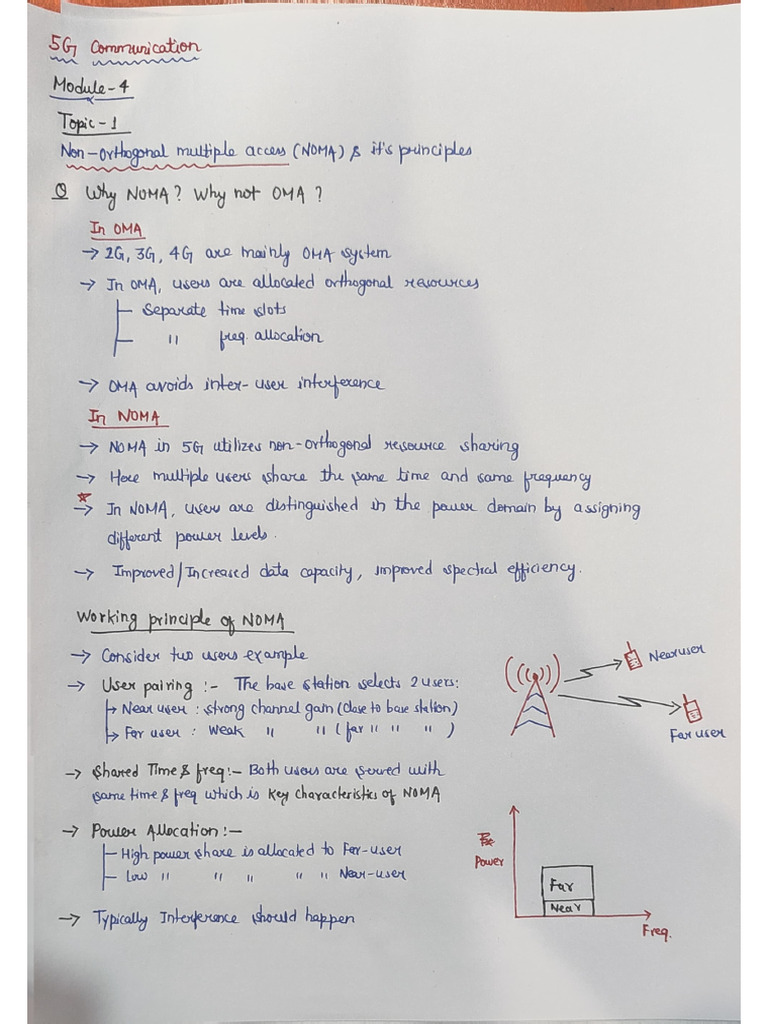 5G Communication
Module-4
Topic-1
Non-orthogonal multiple access (NOMA) & it's principles
Q Why NOMA? Why not OMA?
In OMA
→ 2G, 3G, 4G are mainly OMA system
→ In OMA, users are allocated orthogonal resources
Separate time slots
" freq. allocation
→ OMA avoids inter-user interference
In NOMA
→ NOMA in 5G utilizes non-orthogonal resource sharing
→ Here multiple users share the same time and same frequency
→ In NOMA, users are distinguished in the power domain by assigning
different power levels.
→ Improved/Increased data capacity, improved spectral efficiency.
Working principle of NOMA
→ Consider two users example
→ User pairing :- The base station selects 2 users:
→ Near user : strong channel gain (close to base station)
→ Far user : weak " " (far " " " )
Near user
Far user
→ Shared Time & freq:- Both users are served with
same time & freq which is key characteristics of NOMA
→ Power Allocation :-
High power share is allocated to Far-user
Low " " " " " Near-user
Power
Far
Near
Freq.
→ Typically Interference should happen